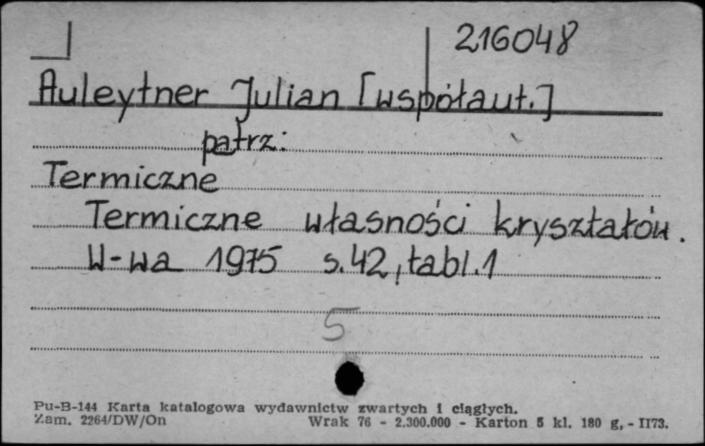 216048
Auleytner Julian [współaut.]
patrz:
Termiczne
Termiczne własności kryształów.
W-wa 1975 s.42, tabl.1
5
Pu-B-144 Karta katalogowa wydawnictw zwartych i ciągłych.
Zam. 2264/DW/On Wrak 76 - 2.300.000 - Karton 5 kl. 180 g, - II73.